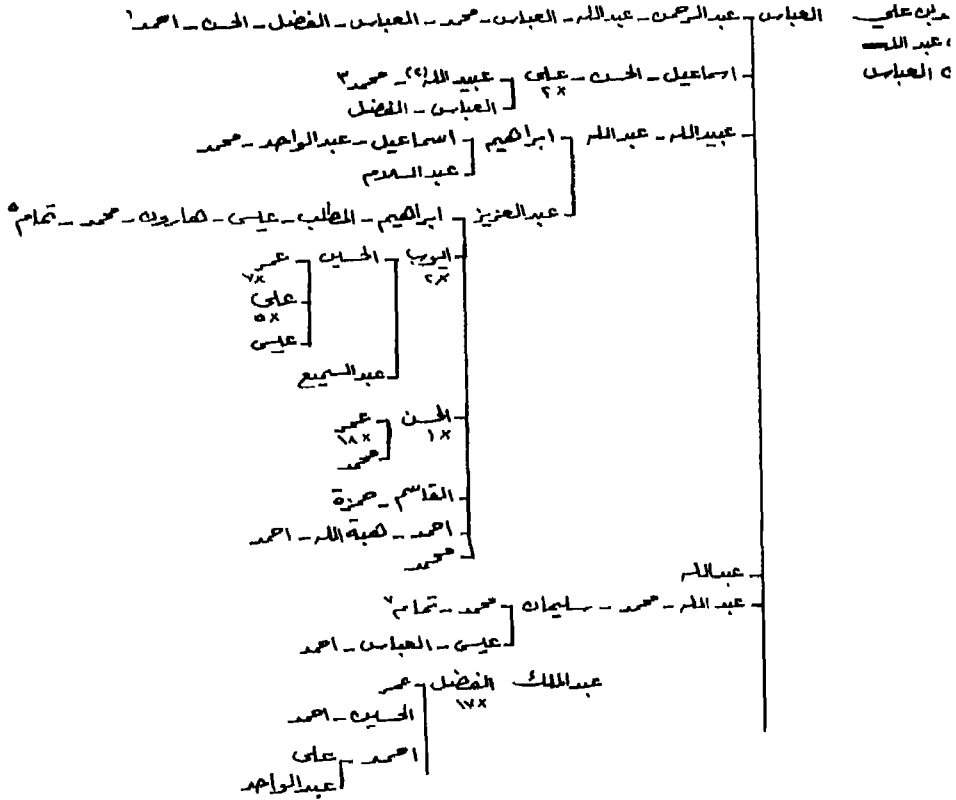 بن علي العباس - عبدالرحمن - عبدالله - العباس - محمد - العباس - الفضل - الحسن - احمد ١
عبد الله
العباس
اسماعيل - الحسن - علي - عبيد الله (٢٢) - محمد ٣
٢×
العباس - الفضل
عبيدالله - عبدالله ابراهيم اسماعيل - عبدالواحد - محمد
عبدالسلام
عبدالعزيز ابراهيم - المطلب - عيسى - هارون - محمد - تمام ٥
ايوب الحسين عمر
٢× ٧×
علي
٥×
عيسى
عبدالسميع
الحسن عمر
١× ١٨×
محمد
القاسم - حمزة
احمد - هبة الله - احمد
محمد
عبدالله
عبدالله - محمد - سليمان محمد - تمام ٧
عيسى - العباس - احمد
عبدالملك الفضل عمر
١٧×
الحسين - احمد
احمد - علي
عبدالواحد